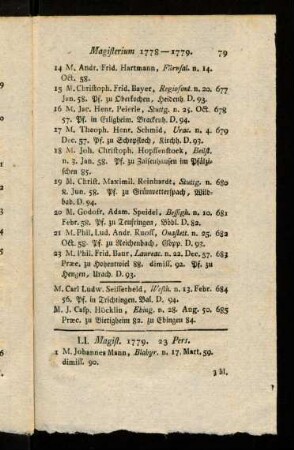 Magisterium 1778—1779. 79
14 M. Andr. Frid. Hartmann, Fürnsal. n. 14.
Oct. 58.
15 M. Christoph. Frid. Bayer, Regiofont. n. 20. 677
Jan. 58. Pf. zu Oberkochen, Heidenh. D. 93.
16 M. Jac. Henr. Peierle, Stuttg. n. 25. Oct. 678
57. Pf. in Erligheim. Brackenh. D. 94.
17 M. Theoph. Henr. Schmid, Urac. n. 4. 679
Dec. 57. Pf. zu Schopfloch, Kirchh. D. 93.
18 M. Joh. Christoph. Hopffenstock,
n. 3. Jan. 58. Pf. zu Zaisenhausen im Pfälzi-
schen 85.
19 M. Christ. Maximil. Reinhardt, Stuttg. n. 680
8. Jun. 58. Pf. zu Grünwetterspach, Wilt-
bad. D. 94.
20 M. Godofr. Adam. Speidel, Besigh. n. 10. 681
Febr. 58. Pf. zu Teufringen, Böbl. D. 82.
21 M. Phil. Lud. Andr. Knoff, Onastett. n. 25. 682
Oct. 58. Pf. zu Reichenbach, Göpp. D. 93.
23 M. Phil. Frid. Baur, Laureac. n. 22. Dec. 57. 683
Præc. zu Hohentwiel 88. dimiss. 92. Pf. zu
Hengen, Urach. D. 93.
M. Carl Ludw. Seifferheld, Westh. n. 13. Febr. 684
56. Pf. in Trichtingen. Bal. D. 94.
M. J. Casp. Höcklin, Ebing. n. 28. Aug. 50. 685
Præc. zu Bietigheim 82. zu Ebingen 84.
LI. Magist. 1779. 23 Pers.
1 M. Johannes Mann, Blabyr. n. 17. Mart. 59.
dimiss. 90.
2 M.